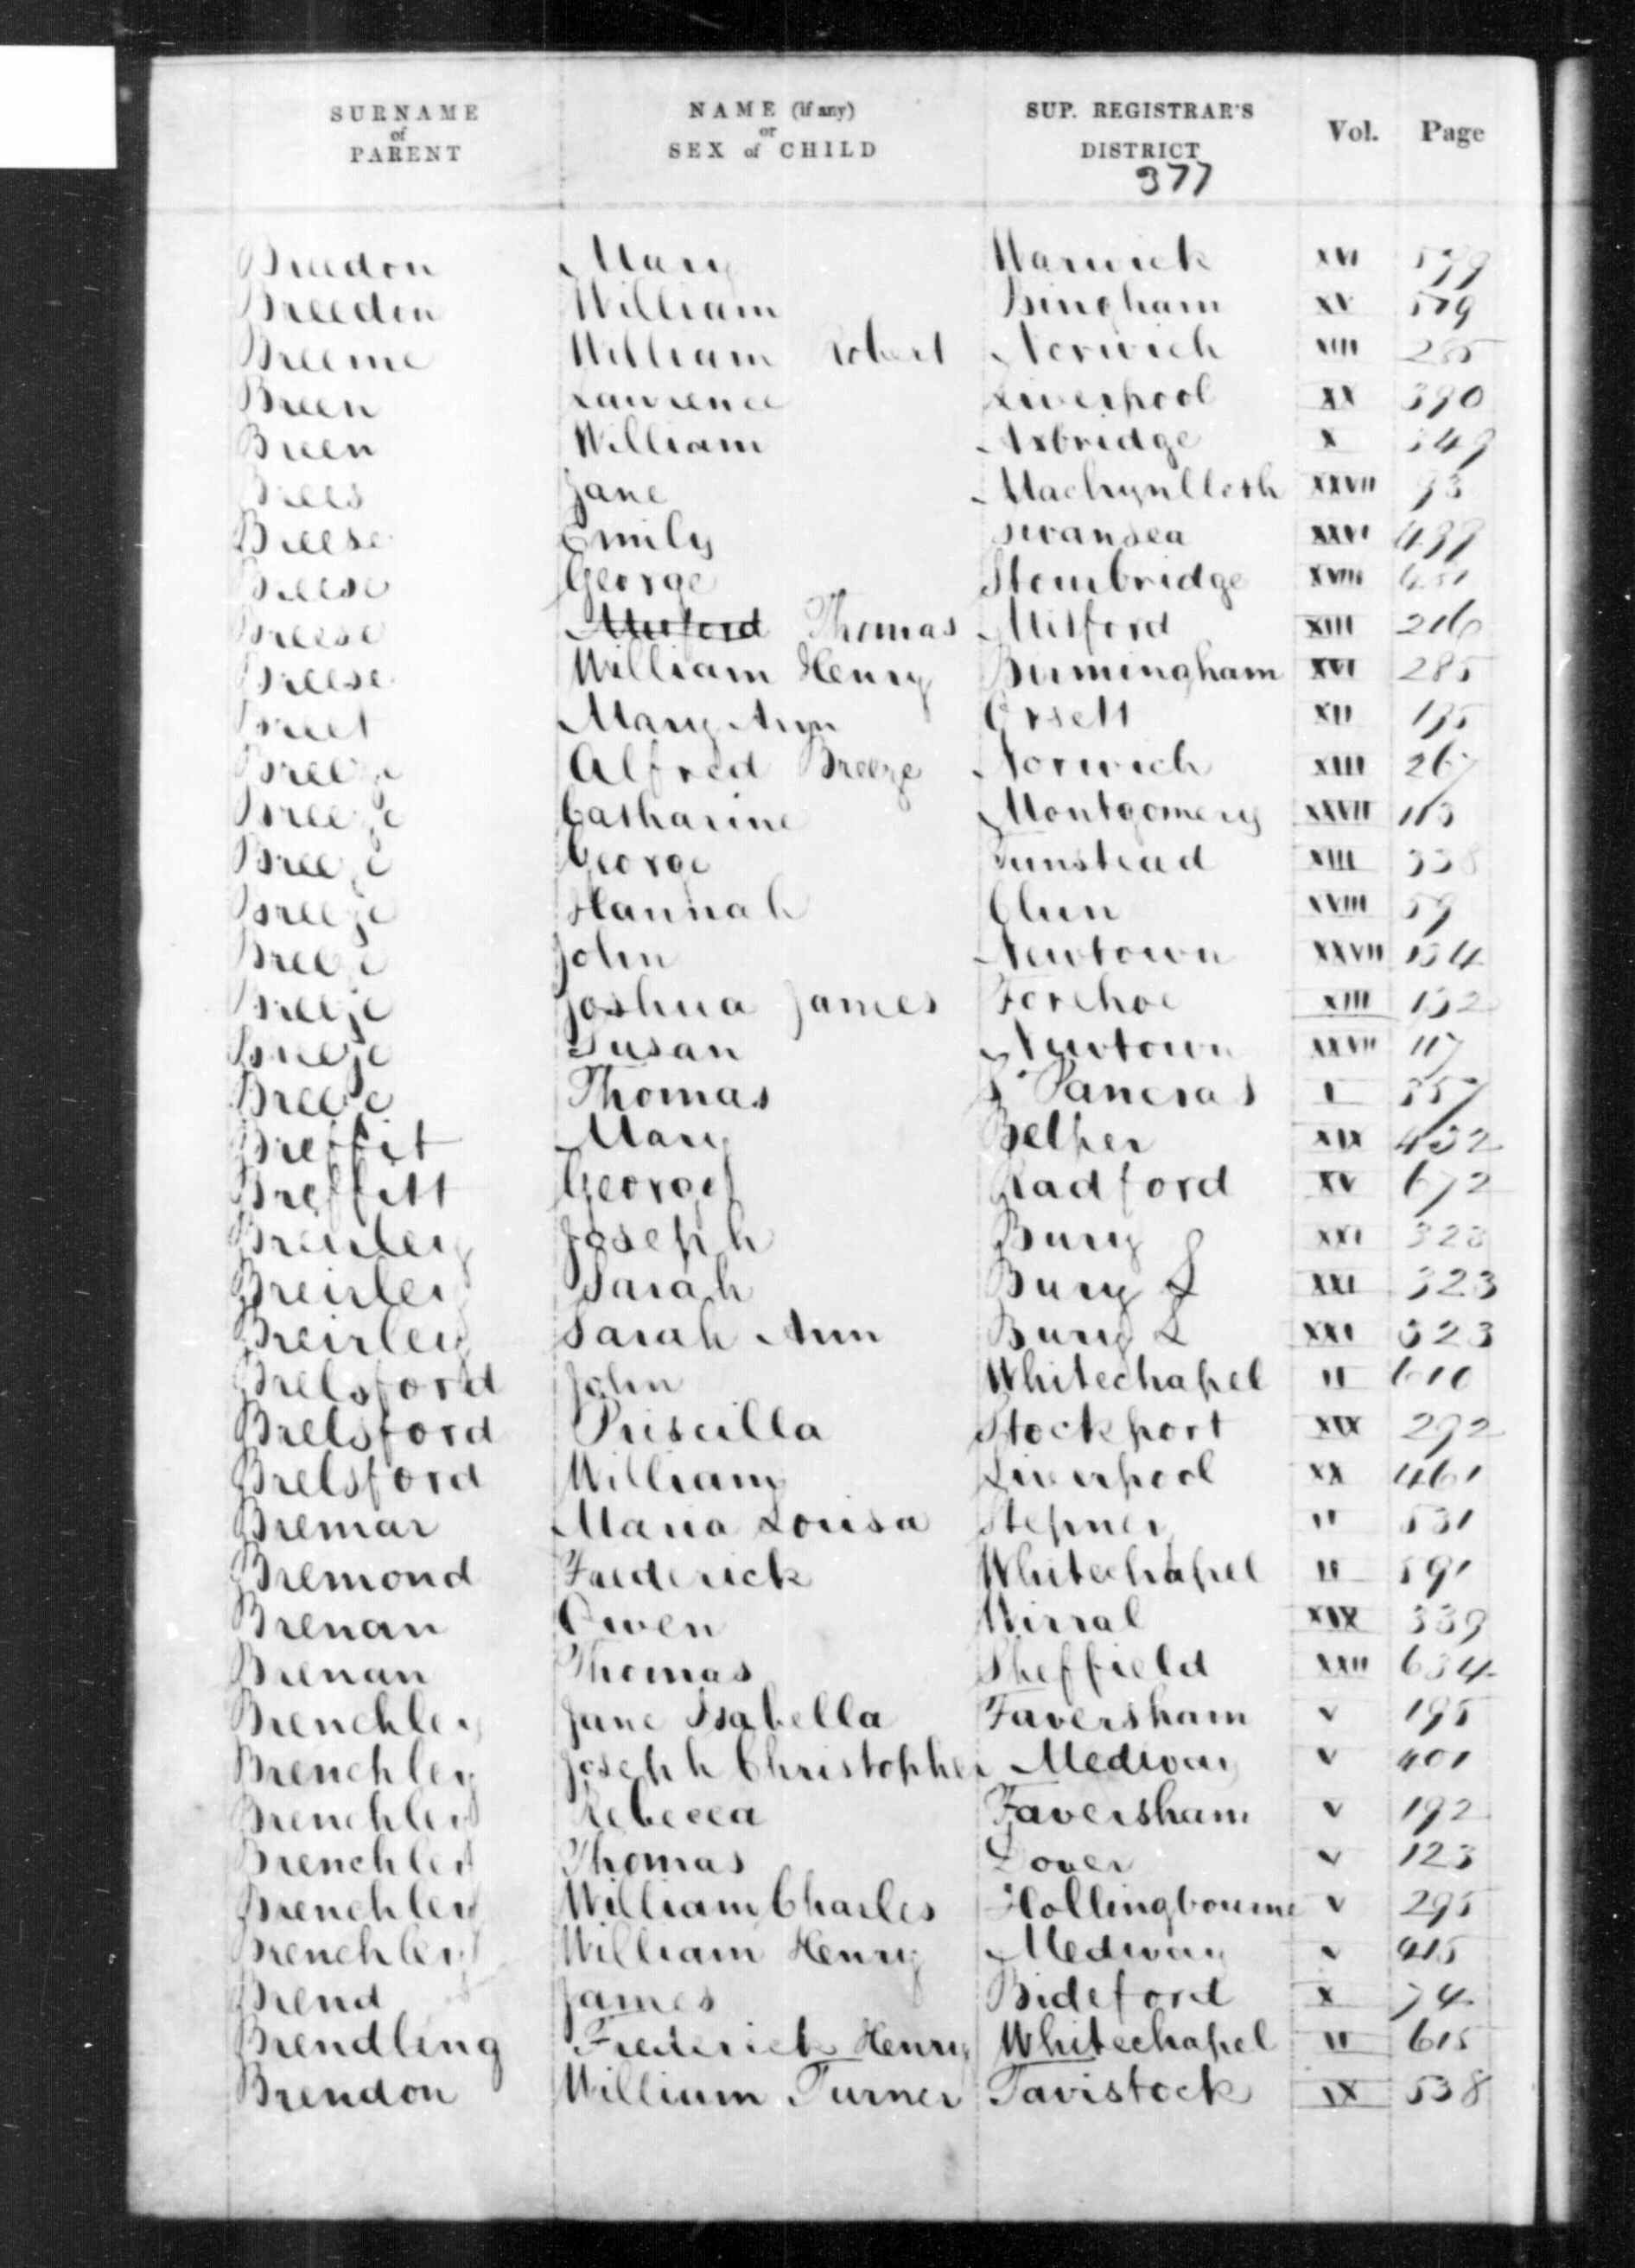 SURNAME of PARENT NAME (if any) or SEX of CHILD SUP. REGISTRAR'S DISTRICT Vol. Page
377
Breedon Mary Warwick XVI
Breedon William Bingham XV 579
Breeme William Robert Norwich XIII
Breen Lawrence Liverpool XX 390
Breen William Axbridge X 349
Brees Jane Machynlleth XXVII 93
Breese Emily Swansea XXVI 499
Breese George Stourbridge XVIII 451
Breese Mitford Thomas Mitford XIII 216
Breese William Henry Birmingham XVI 285
Breet Mary Ann Orsett XII 195
Breeze Alfred Breeze Norwich XIII 267
Breeze Catharine Montgomery XXVII 113
Breeze George Tunstead XIII 338
Breeze Hannah Clun XVIII 59
Breeze John Newtown XXVII 134
Breeze Joshua James Forehoe XIII 132
Breeze Susan Newtown XXVII 117
Breeze Thomas St Pancras I 357
Breffit Mary Belper XIX 432
Breffitt George Radford XV 672
Breirley Joseph Bury XXI 323
Breirley Sarah Bury L XXI 323
Breirley Sarah Ann Bury L XXI 323
Brelsford John Whitechapel II 610
Brelsford Priscilla Stockport XIX 292
Brelsford William Liverpool XX 461
Bremar Maria Louisa Stepney II 531
Bremond Frederick Whitechapel II 591
Brenan Owen Wirral XIX 339
Brenan Thomas Sheffield XXII 634
Brenchley Jane Isabella Faversham V 195
Brenchley Joseph Christopher Medway V 401
Brenchley Rebecca Faversham V 192
Brenchley Thomas Dover V 123
Brenchley William Charles Hollingbourne V 295
Brenchley William Henry Medway V 415
Brend James Bideford X 74
Brendling Frederick Henry Whitechapel II 615
Brendon William Turner Tavistock IX 538